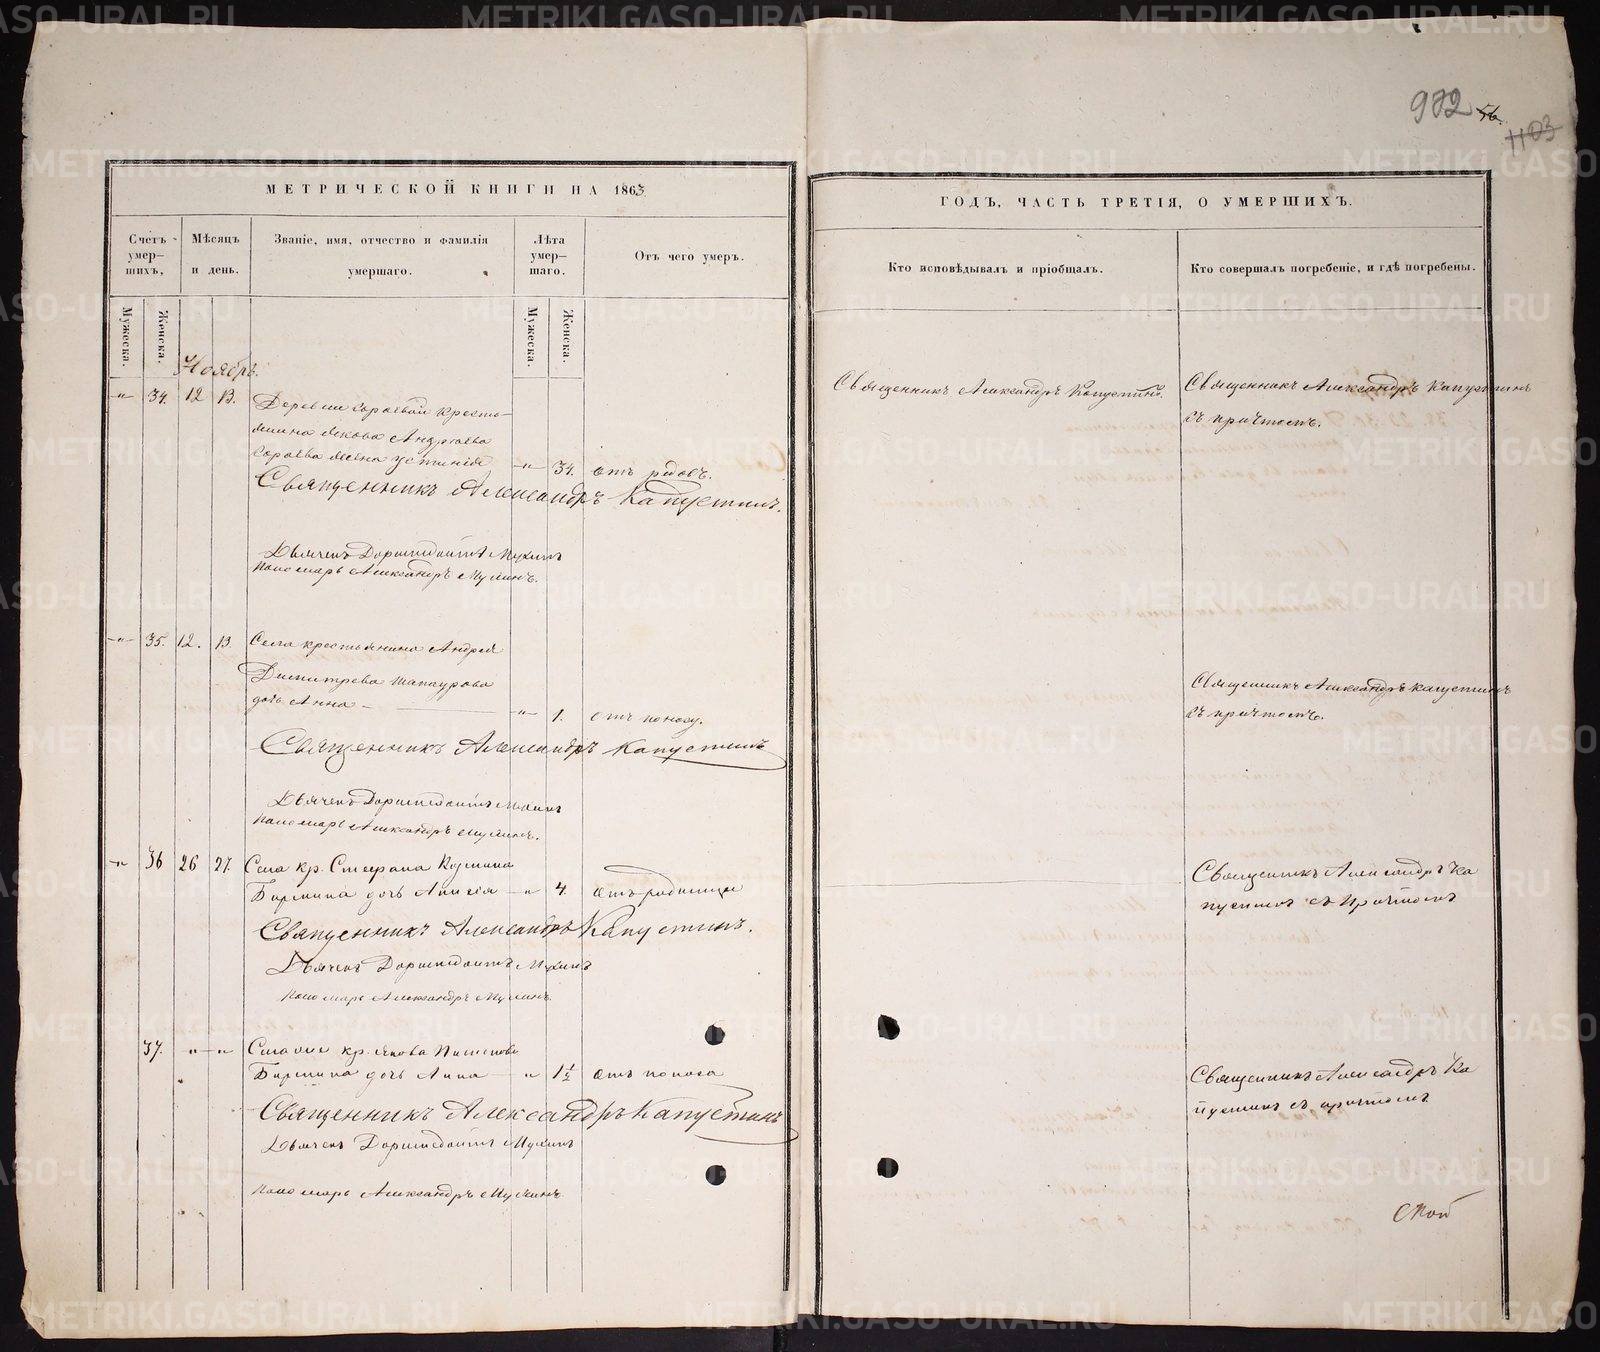 972 56.
1103
МЕТРИЧЕСКОЙ КНИГИ НА 1863
ГОДЪ, ЧАСТЬ ТРЕТІЯ, О УМЕРШИХЪ.
Счетъ умер- шихъ,
Мѣсяцъ и день.
Званіе, имя, отчество и фамилія умершаго.
Лѣта умер- шаго.
Отъ чего умеръ.
Кто исповѣдывалъ и пріобщалъ.
Кто совершалъ погребеніе, и гдѣ погребены.
Мужеска.
Женска.
Мужеска.
Женска.
Ноябрь.
-"- 34. 12 13. Деревни крестья-
янина Якова Андреева
жена Устинія -"- 34. отъ родовъ.
Священникъ Александръ Капустинъ.
Священникъ Александръ Капустинъ
съ причтомъ.
Священникъ Александръ Капустинъ.
Дьячекъ Доримедонтъ Мухинъ
Пономарь Александръ
-"- 35. 12. 13. Села крестьянина Андрея
Димитрева
дочь Анна - -"- 1. отъ поносу.
Священникъ Александръ Капустинъ
съ причтомъ.
Священникъ Александръ Капустинъ
Дьячекъ Доримедонтъ
Пономарь Александръ
-"- 36 26 27. Села кр. Стефана Кузмина
дочь Анисія -"- 4. отъ родимцу
Священникъ Александръ Ка
пустинъ съ причтомъ
Священникъ Александръ Капустинъ.
Дьячекъ Доримедонтъ Мухинъ
Пономарь Александръ
37. "-" кр. Якова
дочь Анна - " 1 1/2 отъ поноса
Священникъ Александръ Ка
пустинъ съ причтомъ
Священникъ Александръ Капустинъ
Дьячекъ Доримедонтъ Мухинъ
Пономарь Александръ
METRIKI.GASO-URAL.RU